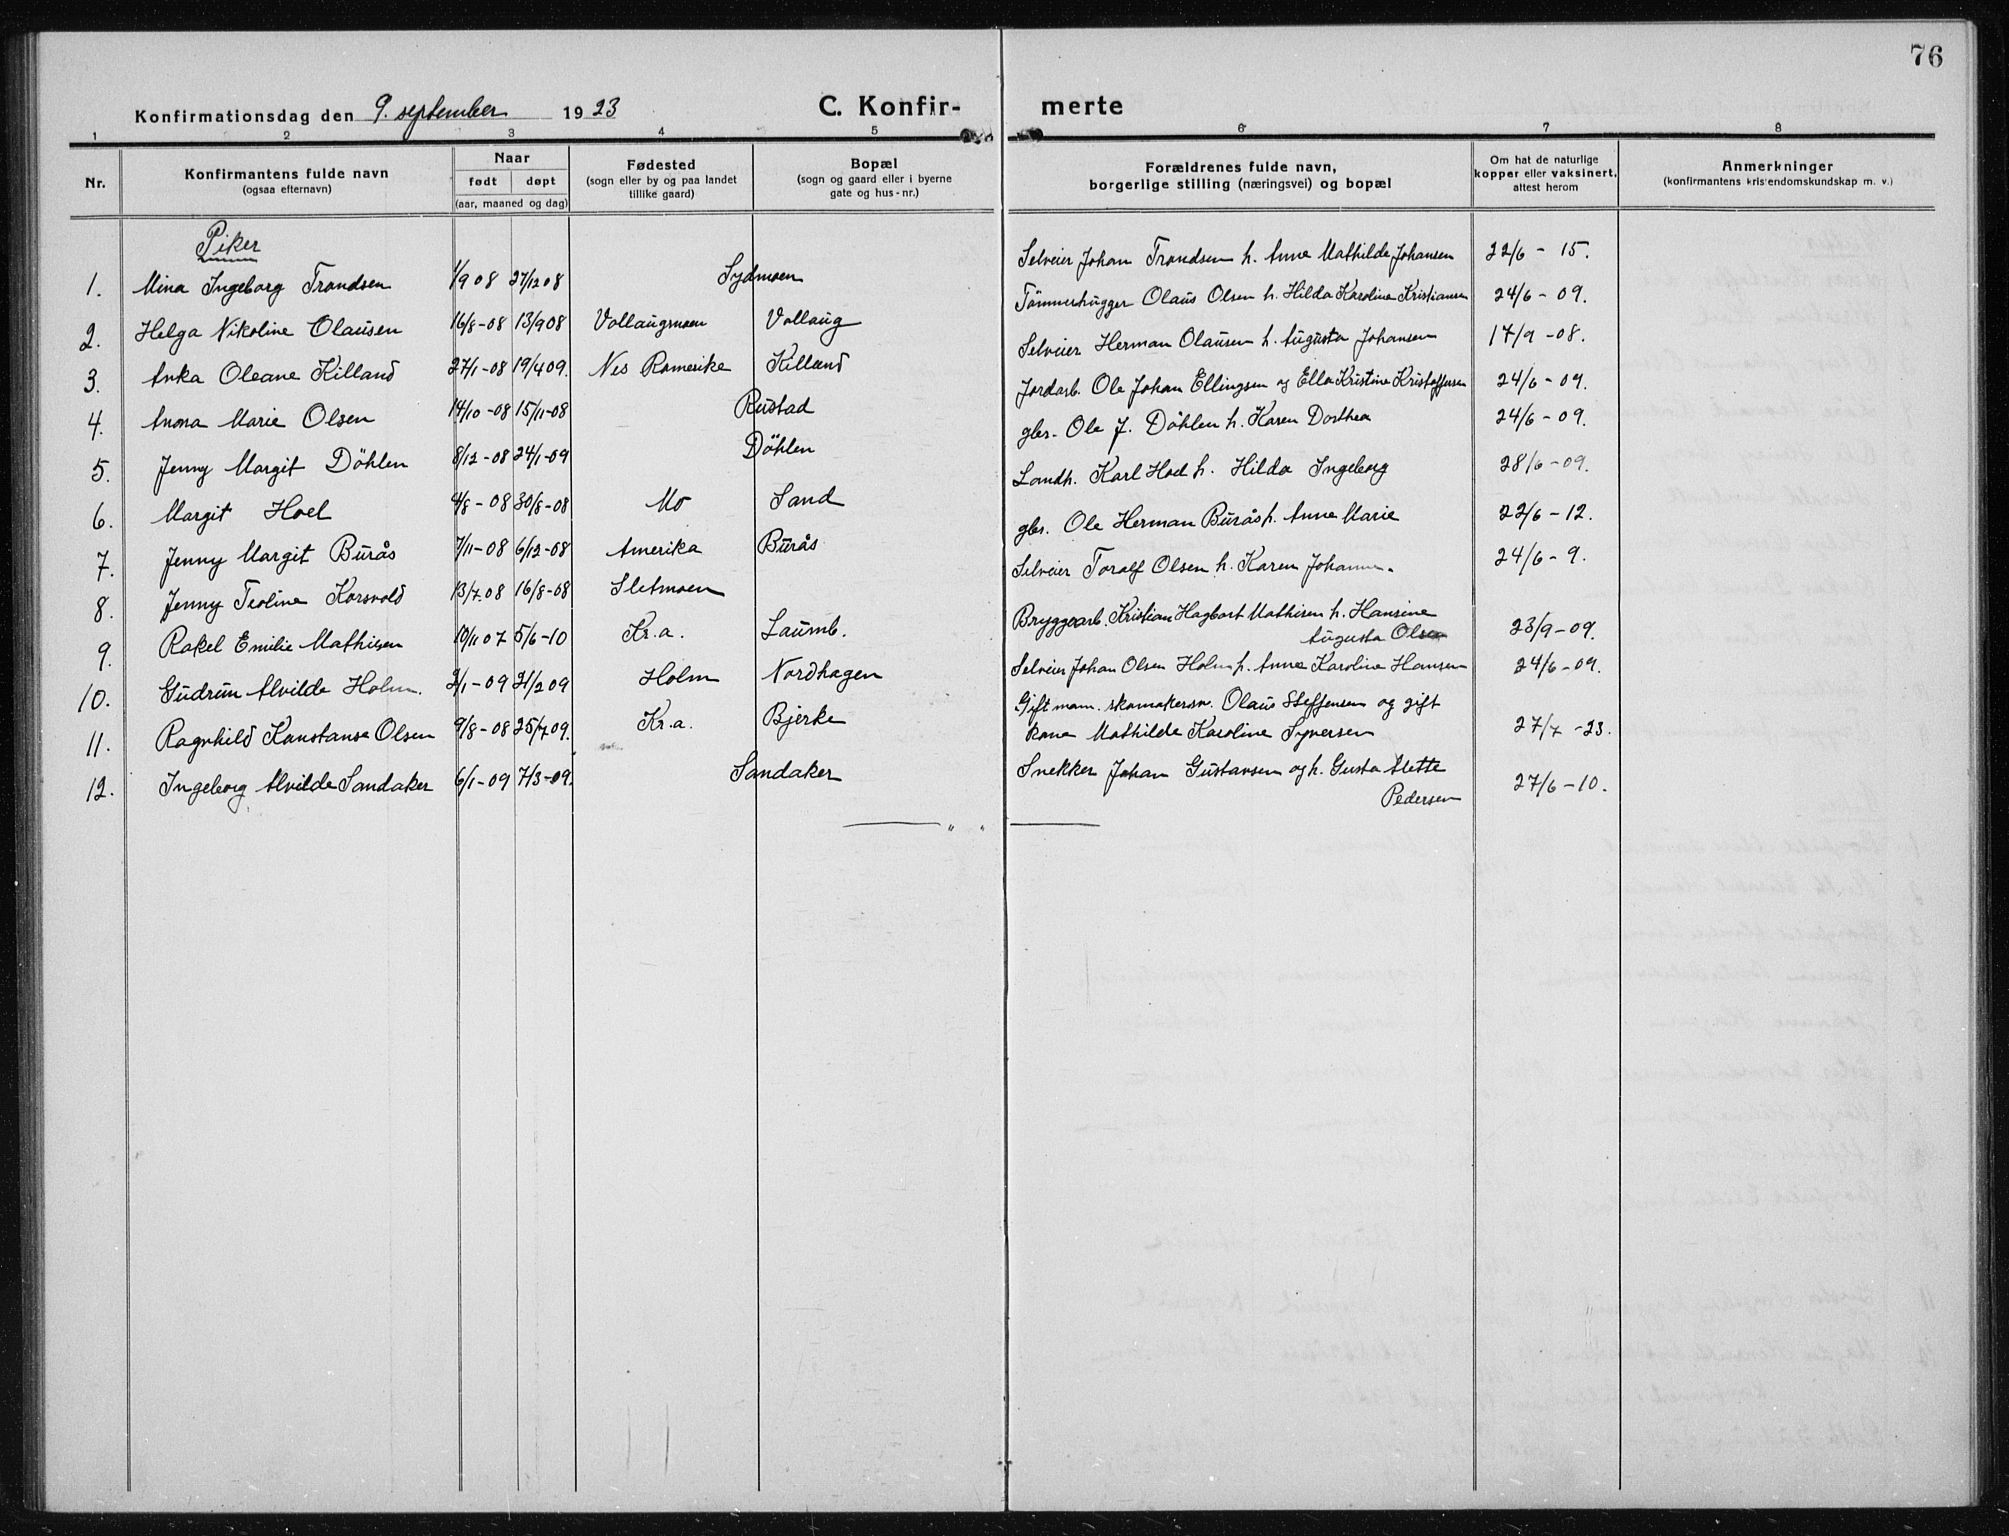 76
Konfirmationsdag den 9. september 1923 C. Konfir- merte
1 2 3 4 5 6 7 8
Nr. Konfirmantens fulde navn (ogsaa efternavn) Naar født døpt (aar, maaned og dag) Fødested (sogn eller by og paa landet tillike gaard) Bopæl (sogn og gaard eller i byerne gate og hus-nr.) Forældrenes fulde navn, borgerlige stilling (næringsvei) og bopæl Om hat de naturlige kopper eller vaksinert, attest herom Anmerkninger (konfirmantens kristendomskundskap m. v.)
Piker
1. Mina Ingeborg Trondsen 1/9 08 27/12 08 Sydmoen Selveier Johan Trondsen h. Anne Mathilde Johansen 22/6 - 15.
2. Helga Nikoline Olausen 16/8-08 13/9 08 Vollaugmoen Vollaug Tömmerhugger Olaus Olsen h. Hilda Karoline Kristiansen 24/6 - 09.
3. Anka Oleane Killand 27/1-08 19/4 09. Nes Romerike Killand Selveier Herman Olausen h. Augusta Johansen 17/9 -08.
4. Anna Marie Olsen 14/10-08 15/11-08 Rustad Jordarb. Ole Johan Ellingsen og Ella Kristine Kristoffersen 24/6 - 09.
5. Jenny Margit Döhlen 8/12-08 24/1-09 Döhlen gbr. Ole J. Döhlen h. Karen Dorthea 24/6 - 09.
6. Margit Hoel 4/8-08 30/8-08 Mo Sand Landh. Karl Hoel h. Hilda Ingeborg 28/6 -09.
7. Jenny Margit Burås 7/11-08 6/12-08 Amerika Burås gbr. Ole Herman Burås h. Anne Marie 22/6 - 12.
8. Jenny Teoline Korsvold 13/7.08 16/8-08 Sletmoen Selveier Toralf Olsen h. Karen 24/6 - 9.
9. Rakel Emilie Mathisen 10/11 07 5/6-10 Kr.a. Laumb. Bryggearb. Kristian Hagbart Mathisen h. Hansine
Augusta Olsen 23/9-09.
10. Gudrun Alvilde Holm. 2/1-09 21/2 09 Holm Nordhagen Selveier Johan Olsen Holm h. Anne Karoline Hansen 24/6 -09.
11. Ragnhild Konstanse Olsen 9/8-08 25/7 09. Kr.a. Bjerke Gift man. skomakersv. Olaus Steffensen og gift
kone Mathilde Karoline Syversen 27/7 -23.
12. Ingeborg Alvilde Sandaker 6/1-09 7/3-09. Sandaker Snekker Johan Gustavsen og h. Gusta Alette
Pedersen 27/6 - 10.